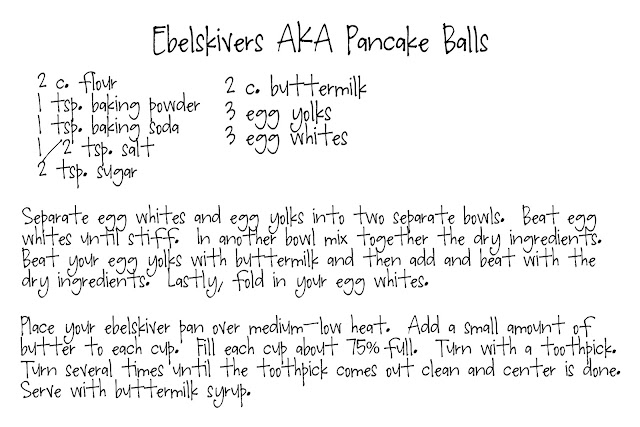 Ebelskivers AKA Pancake Balls
2 c. flour
1 tsp. baking powder
1 tsp. baking soda
1/2 tsp. salt
2 tsp. sugar
2 c. buttermilk
3 egg yolks
3 egg whites
Separate egg whites and egg yolks into two separate bowls. Beat egg
whites until stiff. In another bowl mix together the dry ingredients.
Beat your egg yolks with buttermilk and then add and beat with the
dry ingredients. Lastly, fold in your egg whites.
Place your ebelskiver pan over medium-low heat. Add a small amount of
butter to each cup. Fill each cup about 75% full. Turn with a toothpick.
Turn several times until the toothpick comes out clean and center is done.
Serve with buttermilk syrup.